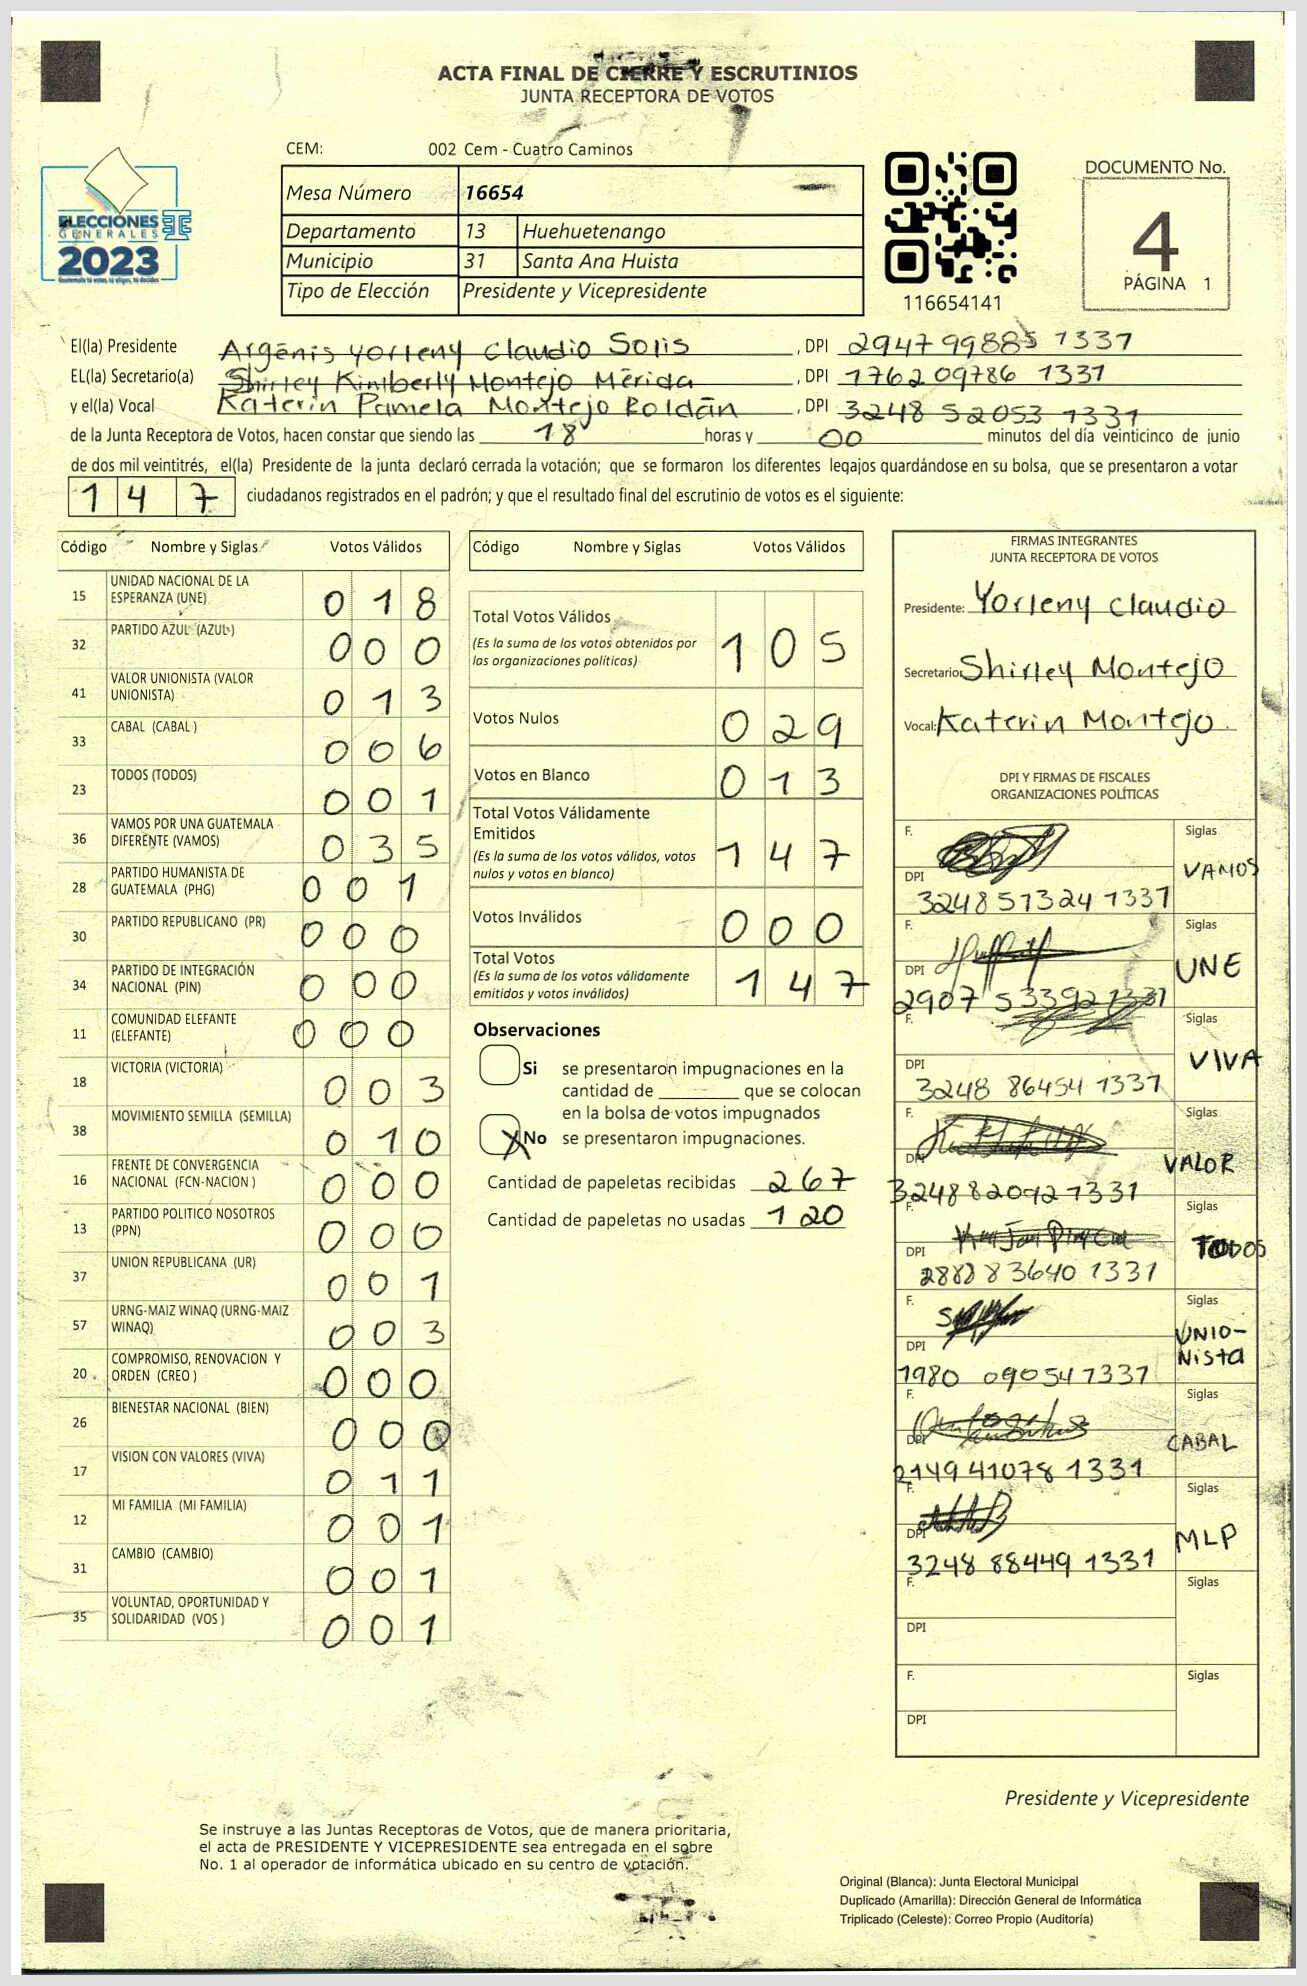 ACTA FINAL DE CIERRE Y ESCRUTINIOS
JUNTA RECEPTORA DE VOTOS
CEM: 002 Cem - Cuatro Caminos
ELECCIONES
GENERALES
2023
Mesa Número 16654
Departamento 13 Huehuetenango
Municipio 31 Santa Ana Huista
Tipo de Elección Presidente y Vicepresidente
116654141
DOCUMENTO No.
4
PÁGINA 1
El(la) Presidente Argenis Yorleny Claudio Solis , DPI 2947 99885 1331
EL(la) Secretario(a) Shirley Kimberly Montejo Mérida , DPI 1762 09786 1331
y el(la) Vocal Katerin Pamela Montejo Roldán , DPI 3248 52053 1331
de la Junta Receptora de Votos, hacen constar que siendo las 18 horas y 00 minutos del día veinticinco de junio
de dos mil veintitrés, el(la) Presidente de la junta declaró cerrada la votación; que se formaron los diferentes legajos quardándose en su bolsa, que se presentaron a votar
147 ciudadanos registrados en el padrón; y que el resultado final del escrutinio de votos es el siguiente:
Código Nombre y Siglas Votos Válidos
15 UNIDAD NACIONAL DE LA ESPERANZA (UNE) 018
32 PARTIDO AZUL (AZUL) 000
41 VALOR UNIONISTA (VALOR UNIONISTA) 013
33 CABAL (CABAL ) 006
23 TODOS (TODOS) 001
36 VAMOS POR UNA GUATEMALA DIFERENTE (VAMOS) 035
28 PARTIDO HUMANISTA DE GUATEMALA (PHG) 001
30 PARTIDO REPUBLICANO (PR) 000
34 PARTIDO DE INTEGRACIÓN NACIONAL (PIN) 000
11 COMUNIDAD ELEFANTE (ELEFANTE) 000
18 VICTORIA (VICTORIA) 003
38 MOVIMIENTO SEMILLA (SEMILLA) 010
16 FRENTE DE CONVERGENCIA NACIONAL (FCN-NACION ) 000
13 PARTIDO POLITICO NOSOTROS (PPN) 000
37 UNION REPUBLICANA (UR) 001
57 URNG-MAIZ WINAQ (URNG-MAIZ WINAQ) 003
20 COMPROMISO, RENOVACION Y ORDEN (CREO ) 000
26 BIENESTAR NACIONAL (BIEN) 000
17 VISION CON VALORES (VIVA) 011
12 MI FAMILIA (MI FAMILIA) 001
31 CAMBIO (CAMBIO) 001
35 VOLUNTAD, OPORTUNIDAD Y SOLIDARIDAD (VOS ) 001
Código Nombre y Siglas Votos Válidos
Total Votos Válidos 105
(Es la suma de los votos obtenidos por
las organizaciones políticas)
Votos Nulos 029
Votos en Blanco 013
Total Votos Válidamente
Emitidos 147
(Es la suma de los votos válidos, votos
nulos y votos en blanco)
Votos Inválidos 000
Total Votos 147
(Es la suma de los votos válidamente
emitidos y votos inválidos)
Observaciones
Si se presentaron impugnaciones en la
cantidad de ________ que se colocan
en la bolsa de votos impugnados
X No se presentaron impugnaciones.
Cantidad de papeletas recibidas 267
Cantidad de papeletas no usadas 120
FIRMAS INTEGRANTES
JUNTA RECEPTORA DE VOTOS
Presidente: Yorleny Claudio
Secretario: Shirley Montejo
Vocal: Katerin Montejo
DPI Y FIRMAS DE FISCALES
ORGANIZACIONES POLÍTICAS
F. Siglas VAMOS
DPI 3248 51324 1331
F. Siglas UNE
DPI 2907 53392 1331
F. Siglas VIVA
DPI 3248 86454 1331
F. Siglas VALOR
DPI 3248 82092 1331
F. Siglas TODOS
DPI 2882 83640 1331
F. Siglas UNIO-
Nista
DPI 1980 09054 1331
F. Siglas CABAL
DPI 2149 41078 1331
F. Siglas MLP
DPI 3248 88449 1331
F. Siglas
DPI
F. Siglas
DPI
Presidente y Vicepresidente
Se instruye a las Juntas Receptoras de Votos, que de manera prioritaria,
el acta de PRESIDENTE Y VICEPRESIDENTE sea entregada en el sobre
No. 1 al operador de informática ubicado en su centro de votación.
Original (Blanca): Junta Electoral Municipal
Duplicado (Amarilla): Dirección General de Informática
Triplicado (Celeste): Correo Propio (Auditoría)